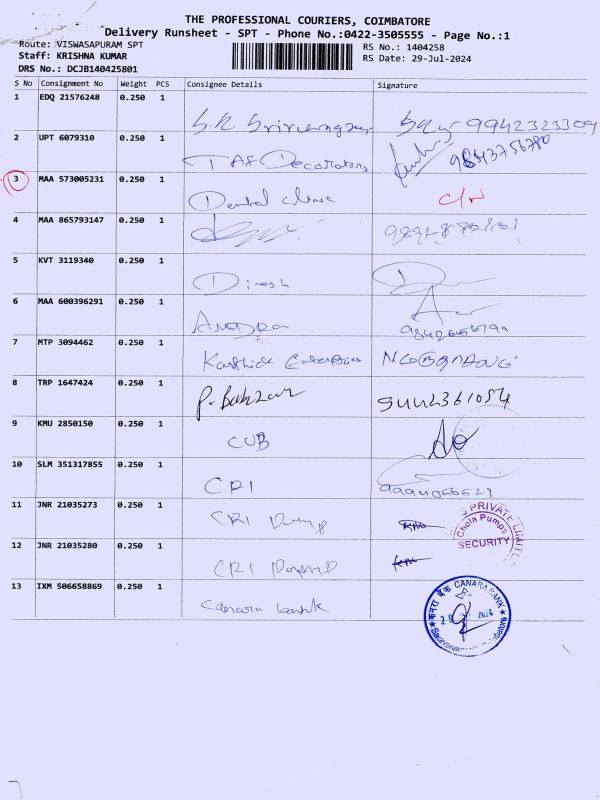 THE PROFESSIONAL COURIERS, COIMBATORE
Delivery Runsheet - SPT - Phone No.:0422-3505555 - Page No.:1
Route: VISWASAPURAM SPT
Staff: KRISHNA KUMAR
DRS No.: DCJB140425801
RS No.: 1404258
RS Date: 29-Jul-2024
S No Consignment No Weight PCS Consignee Details Signature
1 EDQ 21576248 0.250 1
9942323309
2 UPT 6079310 0.250 1
TAS Decorators 9843756780
3 MAA 573005231 0.250 1
Dental clinic
4 MAA 865793147 0.250 1
5 KVT 3119340 0.250 1
Dinesh
6 MAA 600396291 0.250 1
7 MTP 3094462 0.250 1
Karthick Enterprises
8 TRP 1647424 0.250 1
9 KMU 2850150 0.250 1
CUB
10 SLM 351317855 0.250 1
CRI
11 JNR 21035273 0.250 1
CRI Pump
S PRIVATE LIMITE
Chola Pumps
SECURITY
12 JNR 21035280 0.250 1
CRI
13 IXM 506658869 0.250 1
Canara bank
केनरा बैंक CANARA BANK